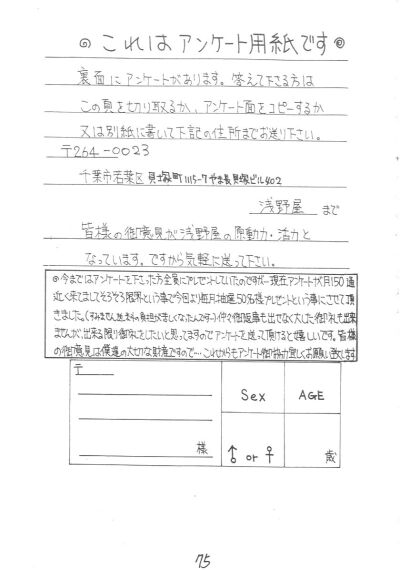 ◎ これはアンケート用紙です ◎
裏面にアンケートがあります。答えて下さる方は
この頁を切り取るか、アンケート面をコピーするか
又は別紙に書いて下記の住所までお送り下さい。
〒264-0023
千葉市若葉区貝塚町1115-7やま長貝塚ビル402
浅野屋 まで
皆様の御意見が浅野屋の原動力・活力と
なっています。ですから気軽に送って下さい。
◎今まではアンケートを下さった方全員にプレゼントしていたのですが…現在アンケートが月150通
近く来てましてそろそろ限界という事で今回より毎月抽選50名様プレゼントという事にさせて頂
きました。(すみません
仲々御返事も出せなく大した御礼も出来
ませんが、出来る限り御礼をしたいと思ってますのでアンケートを送って頂けると嬉しいです。皆様
の御意見は僕達の大切な財産ですので…これからもアンケート御協力宜しくお願い致します
〒
様
Sex
AGE
♂ or ♀
歳
75